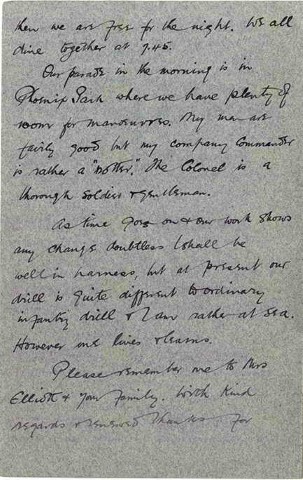 then we are free for the night. We all
dine together at 7.45.
Our parade in the morning is in
Phoenix Park where we have plenty of
room for manoeuvres. My men are
fairly good but my company Commander
is rather a "rotter". The Colonel is a
thorough soldier & gentleman.
As time goes on & our work shows
any change doubtless I shall be
well in harness, but at present our
drill is quite different to ordinary
infantry drill & I am rather at sea.
However one lives & learns.
Please remember me to Mrs
Elliott & your family. With kind
regards & renewed thanks for